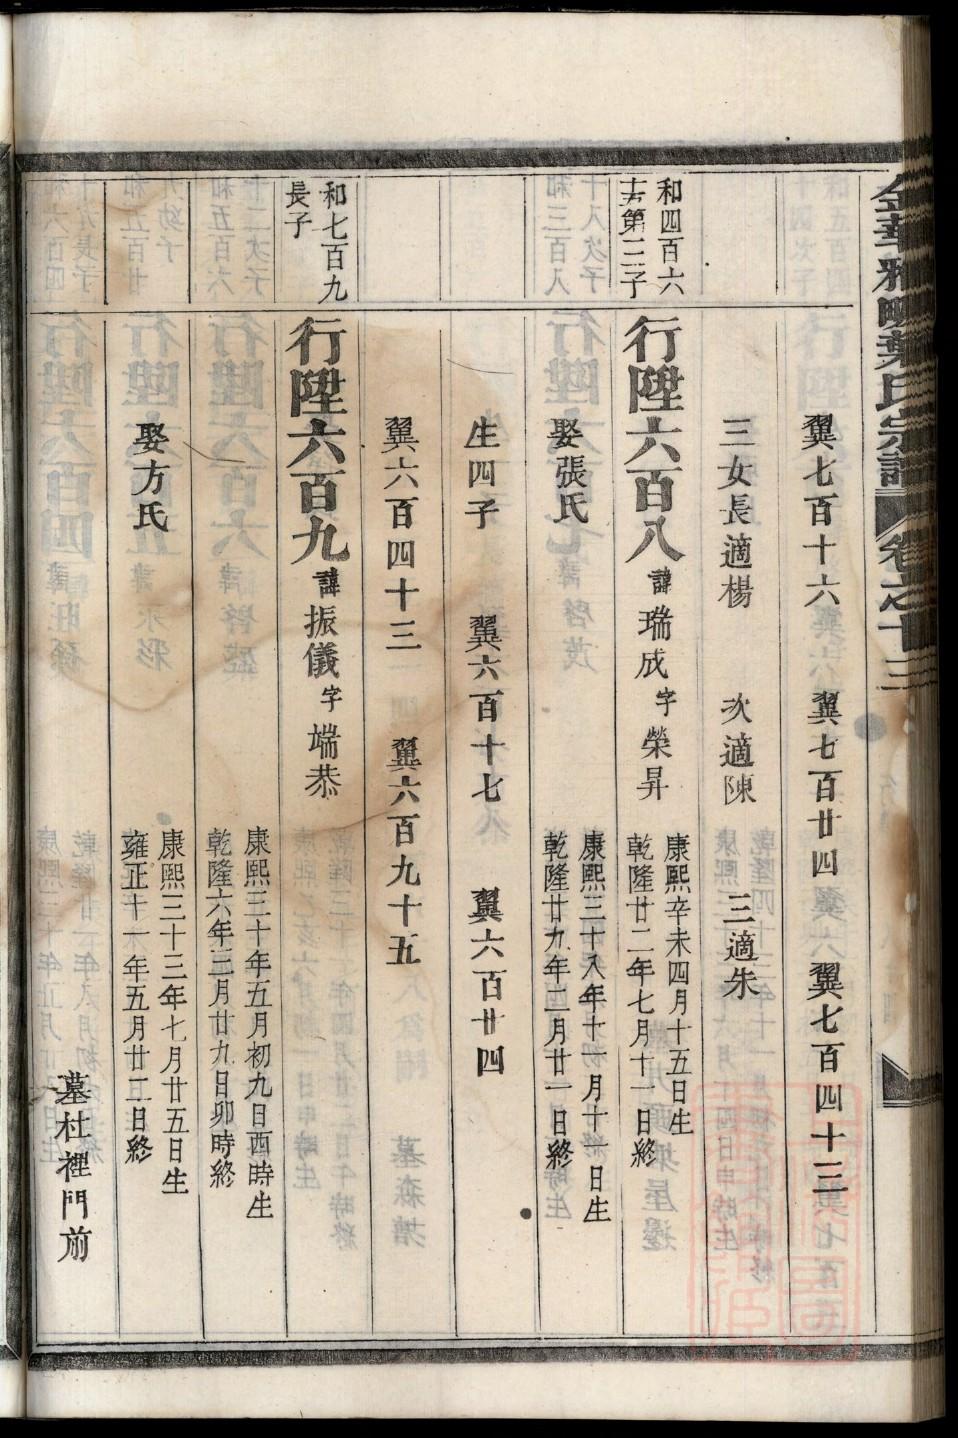 金華雅畈葉氏宗譜 卷之十三
翼七百十六 翼七百廿四 翼七百四十三
三女長適楊 次適陳 三適朱
和四百六
十六第三子
行陞六百八 諱瑞成 字榮昇
康熙辛未四月十五日生
乾隆廿二年七月十一日終
娶張氏
康熙三十八年十一月十一日生
乾隆廿九年二月廿一日終
生四子 翼六百十七 翼六百廿四
翼六百四十三 翼六百九十五
和七百九
長子
行陞六百九 諱振儀 字端恭
康熙三十年五月初九日酉時生
乾隆六年三月廿九日卯時終
娶方氏
康熙三十三年七月廿五日生
雍正十一年五月廿二日終
墓杜裡門前